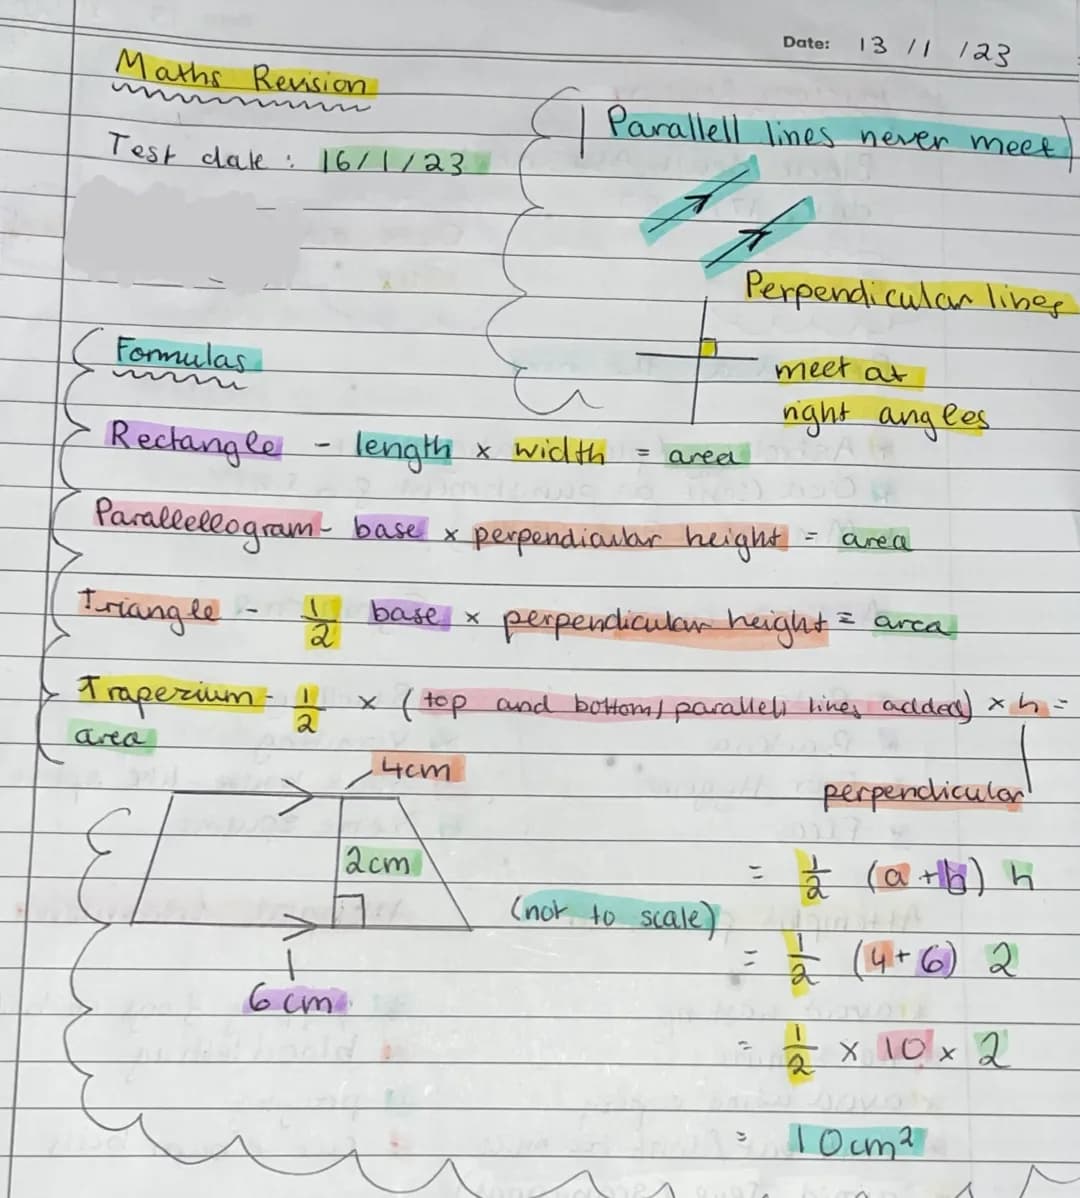 Date: 13 / 1 / 23
Maths Revision
Test date : 16/1/23
Parallell lines never meet
Perpendicular lines
meet at
right angles
Formulas
Rectangle - length x width = area
Parallellogram - base x perpendicular height = area
Triangle - 1/2 base x perpendicular height = area
Trapezium - 1/2 x (top and bottom/parallell lines added) x h =
area
perpendicular
4cm
2cm
(not to scale)
6cm
= 1/2 (a+b) h
= 1/2 (4+6) 2
= 1/2 x 10 x 2
= 10cm²